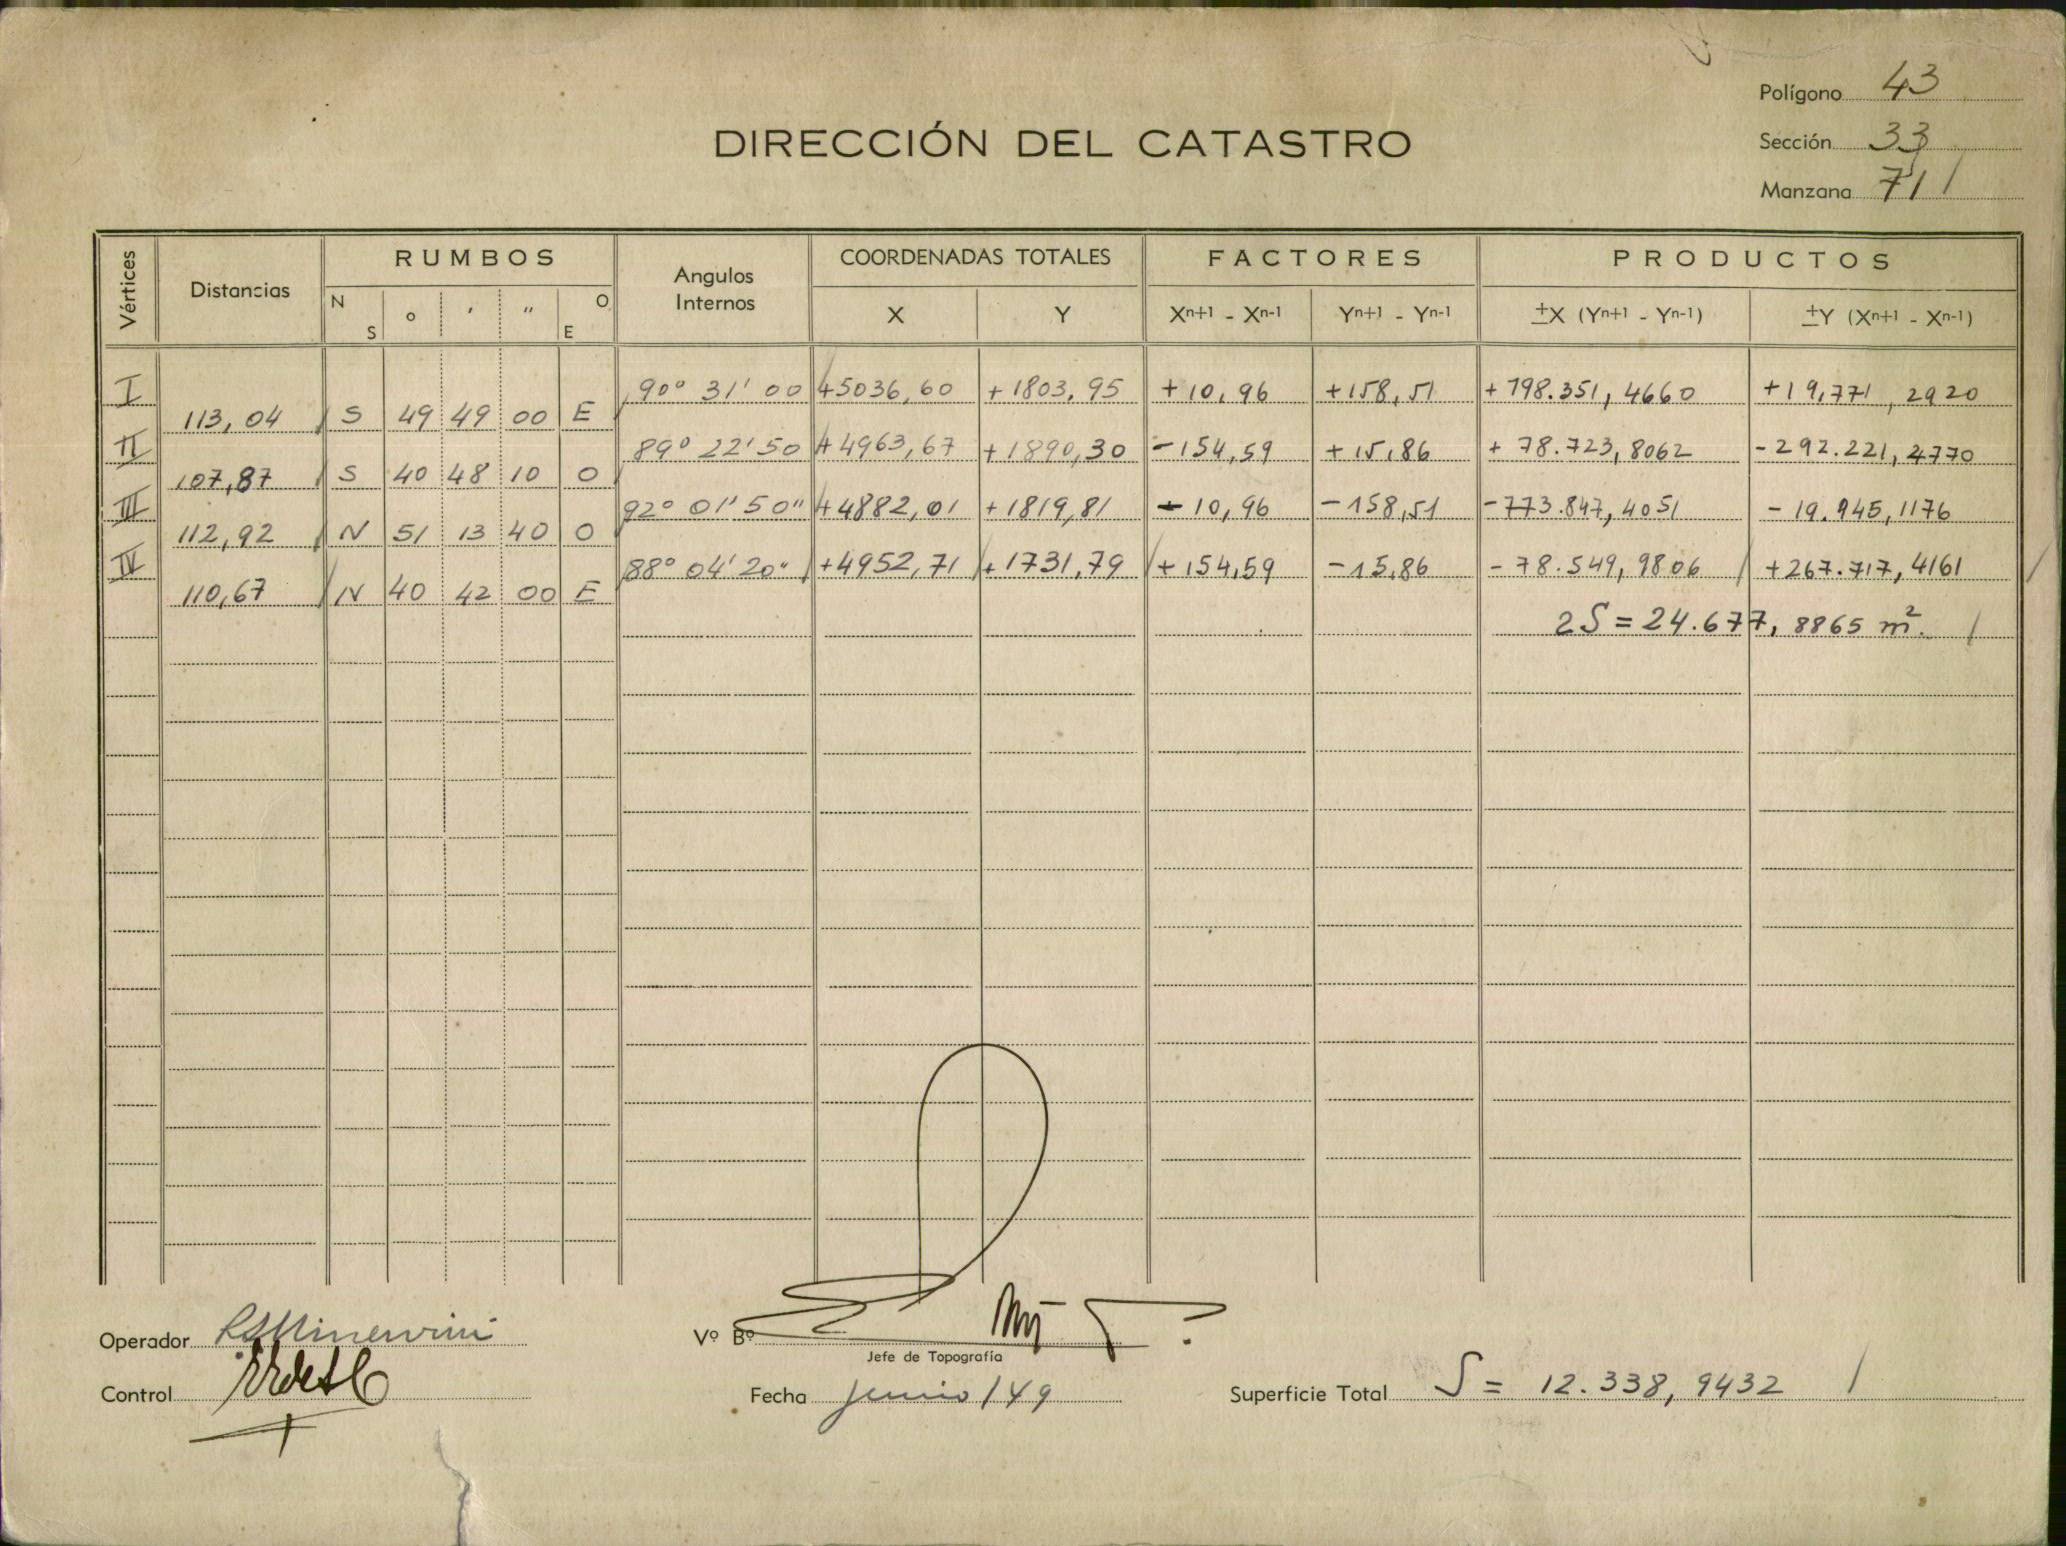 Polígono 43
DIRECCIÓN DEL CATASTRO
Sección 33
Manzana 71 /
Vértices Distancias RUMBOS Angulos Internos COORDENADAS TOTALES FACTORES PRODUCTOS
N S o ′ ″ O E X Y Xⁿ⁺¹ - Xⁿ⁻¹ Yⁿ⁺¹ - Yⁿ⁻¹ ±X (Yⁿ⁺¹ - Yⁿ⁻¹) ±Y (Xⁿ⁺¹ - Xⁿ⁻¹)
I 90° 31' 00 +5036,60 +1803,95 +10,96 +158,51 +798.351,4660 +19,771,2920
113,04 / S 49 49 00 E
II 89° 22' 50 +4963,67 +1890,30 -154,59 +15,86 +78.723,8062 -292.221,2770
107,87 / S 40 48 10 O
III 92° 01' 50" +4882,01 +1819,81 -10,96 -158,51 -773.847,4051 -19.945,1176
112,92 / N 51 13 40 O
IV 88° 04' 20" +4952,71 / +1731,79 / +154,59 -15,86 -78.549,9806 / +267.717,4161 /
110,67 / N 40 42 00 E
2S = 24.677,8865 m². /
Operador Minervini
Vº Bº
Jefe de Topografía
Control
Fecha junio / 49
Superficie Total S = 12.338,9432 /